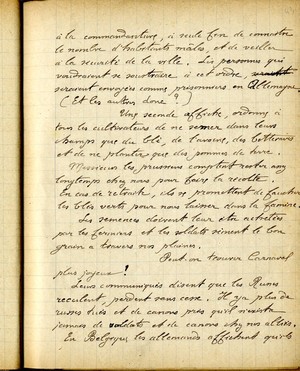 à la commandanture, à seule fin de connaitre
le nombre d'habitants mâles, et de veiller
à la sécurité de la ville. Les personnes qui
voudraient se soustraire à cet ordre,
seraient envoyées comme prisonniers en Allemagne
(Et les autres donc ?)
Une seconde affiche, ordonne à
tous les cultivateurs de ne semer dans leurs
champs que du blé, de l'avoine, des betteraves
et de ne planter que des pommes de terre.
Messieurs les prussiens comptent rester assez
longtemps chez nous pour faire la récolte.
En cas de retraite, ils se promettent de faucher
les blés verts pour nous laisser dans la famine.
Les semences doivent leur être achetées
par les fermiers et les soldats sèment le bon
grain à travers nos plaines.
Peut-on trouver Carnaval
plus joyeux !
Leurs communiqués disent que les Russes
reculent, perdent sans cesse. Il y a plus de
russes tués et de canons pris qu'il n'exista
jamais de soldats et de canons chez nos alliés.
En Belgique les allemands affichent qu'ils